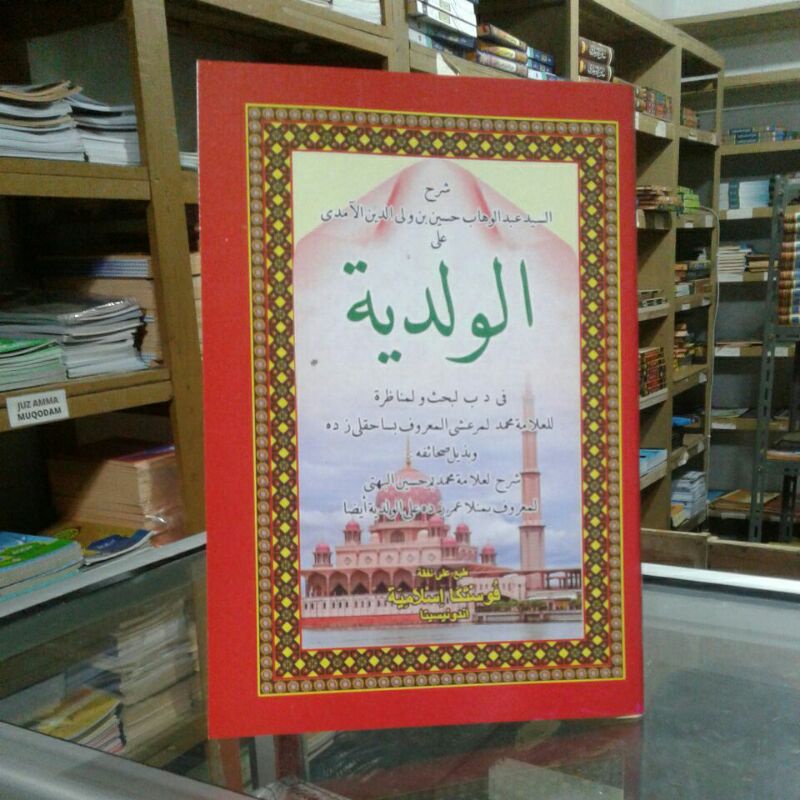 شرح
السيد عبد الوهاب حسين بن ولى الدين الآمدى
على
الولدية
فى د ب لبحث و لمناظرة
للعلامة محمد لمرعشى المعروف بساحقلى ز ده
وبذيل صحائفه
شرح لعلامة محمد بن حسين البهتى
لمعروف بمنلا عمر ز ده على الولدية أيضا
طبع على نفقة
فوستكا إسلامية
اندونيسيا
JUZ AMMA
MUQODAM